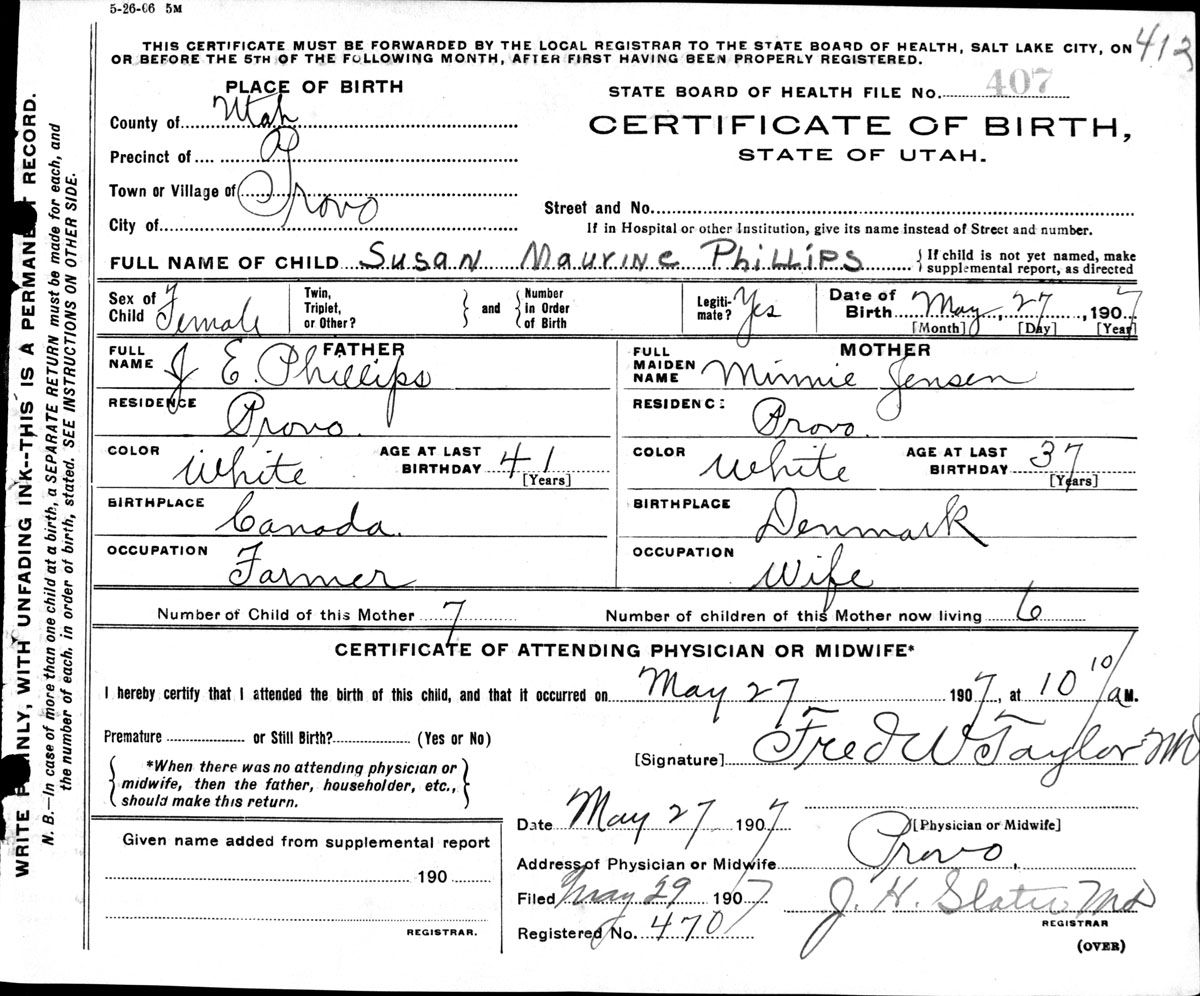 5-26-06 5M
THIS CERTIFICATE MUST BE FORWARDED BY THE LOCAL REGISTRAR TO THE STATE BOARD OF HEALTH, SALT LAKE CITY, ON 413
OR BEFORE THE 5TH OF THE FOLLOWING MONTH, AFTER FIRST HAVING BEEN PROPERLY REGISTERED.
PLACE OF BIRTH
County of Utah
Precinct of
Town or Village of
City of Provo
STATE BOARD OF HEALTH FILE No. 407
CERTIFICATE OF BIRTH,
STATE OF UTAH.
Street and No.
If in Hospital or other Institution, give its name instead of Street and number.
FULL NAME OF CHILD SUSAN MAURINE PHILLIPS { If child is not yet named, make
supplemental report, as directed
Sex of Child Female
Twin, Triplet, or Other? } and { Number in Order of Birth
Legiti-mate? Yes
Date of Birth May, 27, 1907
[Month] [Day] [Year]
FATHER
FULL NAME J E. Phillips
RESIDENCE Provo.
COLOR White AGE AT LAST BIRTHDAY 41
[Years]
BIRTHPLACE Canada.
OCCUPATION Farmer
MOTHER
FULL MAIDEN NAME Minnie Jensen
RESIDENCE Provo.
COLOR White AGE AT LAST BIRTHDAY 37
[Years]
BIRTHPLACE Denmark
OCCUPATION Wife
Number of Child of this Mother 7 Number of children of this Mother now living 6
CERTIFICATE OF ATTENDING PHYSICIAN OR MIDWIFE*
I hereby certify that I attended the birth of this child, and that it occurred on May 27 1907, at 10 10/ a M.
Premature or Still Birth? (Yes or No)
*When there was no attending physician or
midwife, then the father, householder, etc.,
should make this return.
[Signature] Fred W Taylor MD
[Physician or Midwife]
Date May 27 1907
Address of Physician or Midwife Provo.
Filed May 29 1907 J. H. Slater Md
REGISTRAR
Registered No. 470
(OVER)
Given name added from supplemental report
190
REGISTRAR.
WRITE PLAINLY, WITH UNFADING INK--THIS IS A PERMANENT RECORD.
N. B.—In case of more than one child at a birth, a SEPARATE RETURN must be made for each, and
the number of each, in order of birth, stated. SEE INSTRUCTIONS ON OTHER SIDE.